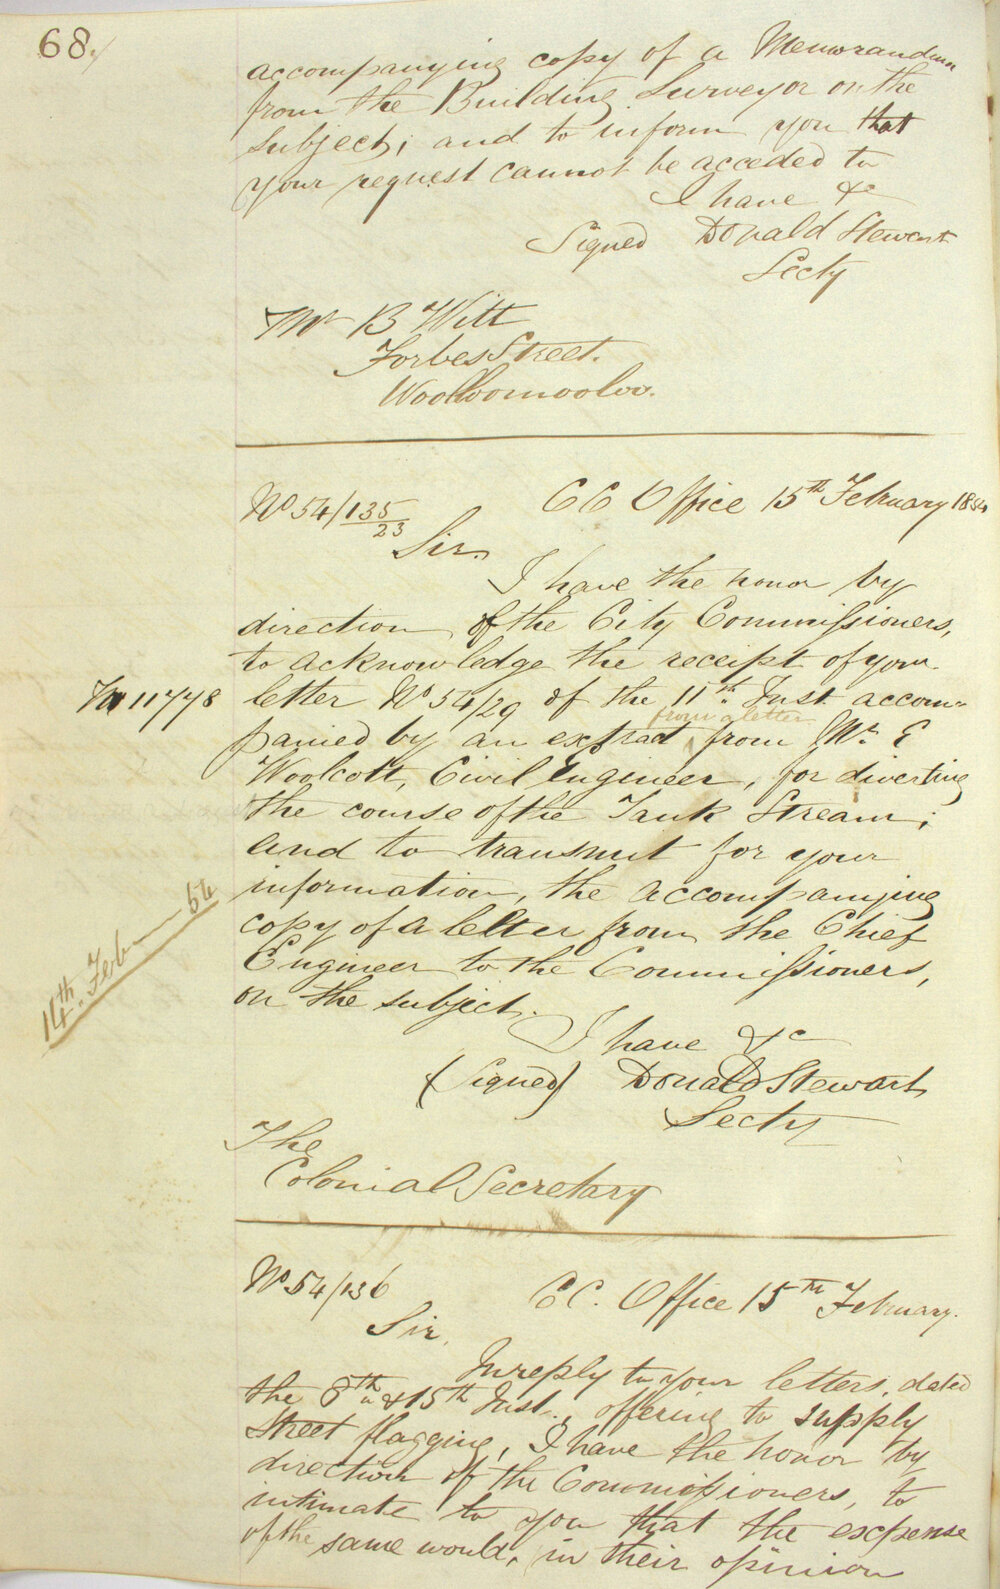 68.
accompanying copy of a Memorandum
from the Building Surveyor on the
subject; and to inform you that
your request cannot be acceded to
I have &c
Signed Donald Stewart
Secty
Mr B Witt
Forbes Street.
Woolloomooloo.
No 54/135/23
CC Office 15th February 1854
Sir.
I have the honor by
direction of the City Commissioners,
to acknowledge the receipt of your
11778
letter No 54/29 of the 11th Inst accom-
from a letter
panied by an extract from Mr. E
Woolcott, Civil Engineer, for diverting
the course of the Tank Stream;
and to transmit for your
information, the accompanying
14th Feb 54
copy of a letter from the Chief
Engineer to the Commissioners,
on the subject.
I have &c
(Signed) Donald Stewart
Secty
The
Colonial Secretary
No 54/136
CC. Office 15th February.
Sir,
In reply to your letters, dated
the 8th & 15th Inst., offering to supply
Street flagging, I have the honor by
direction of the Commissioners, to
intimate to you that the expense
of the same would, in their opinion